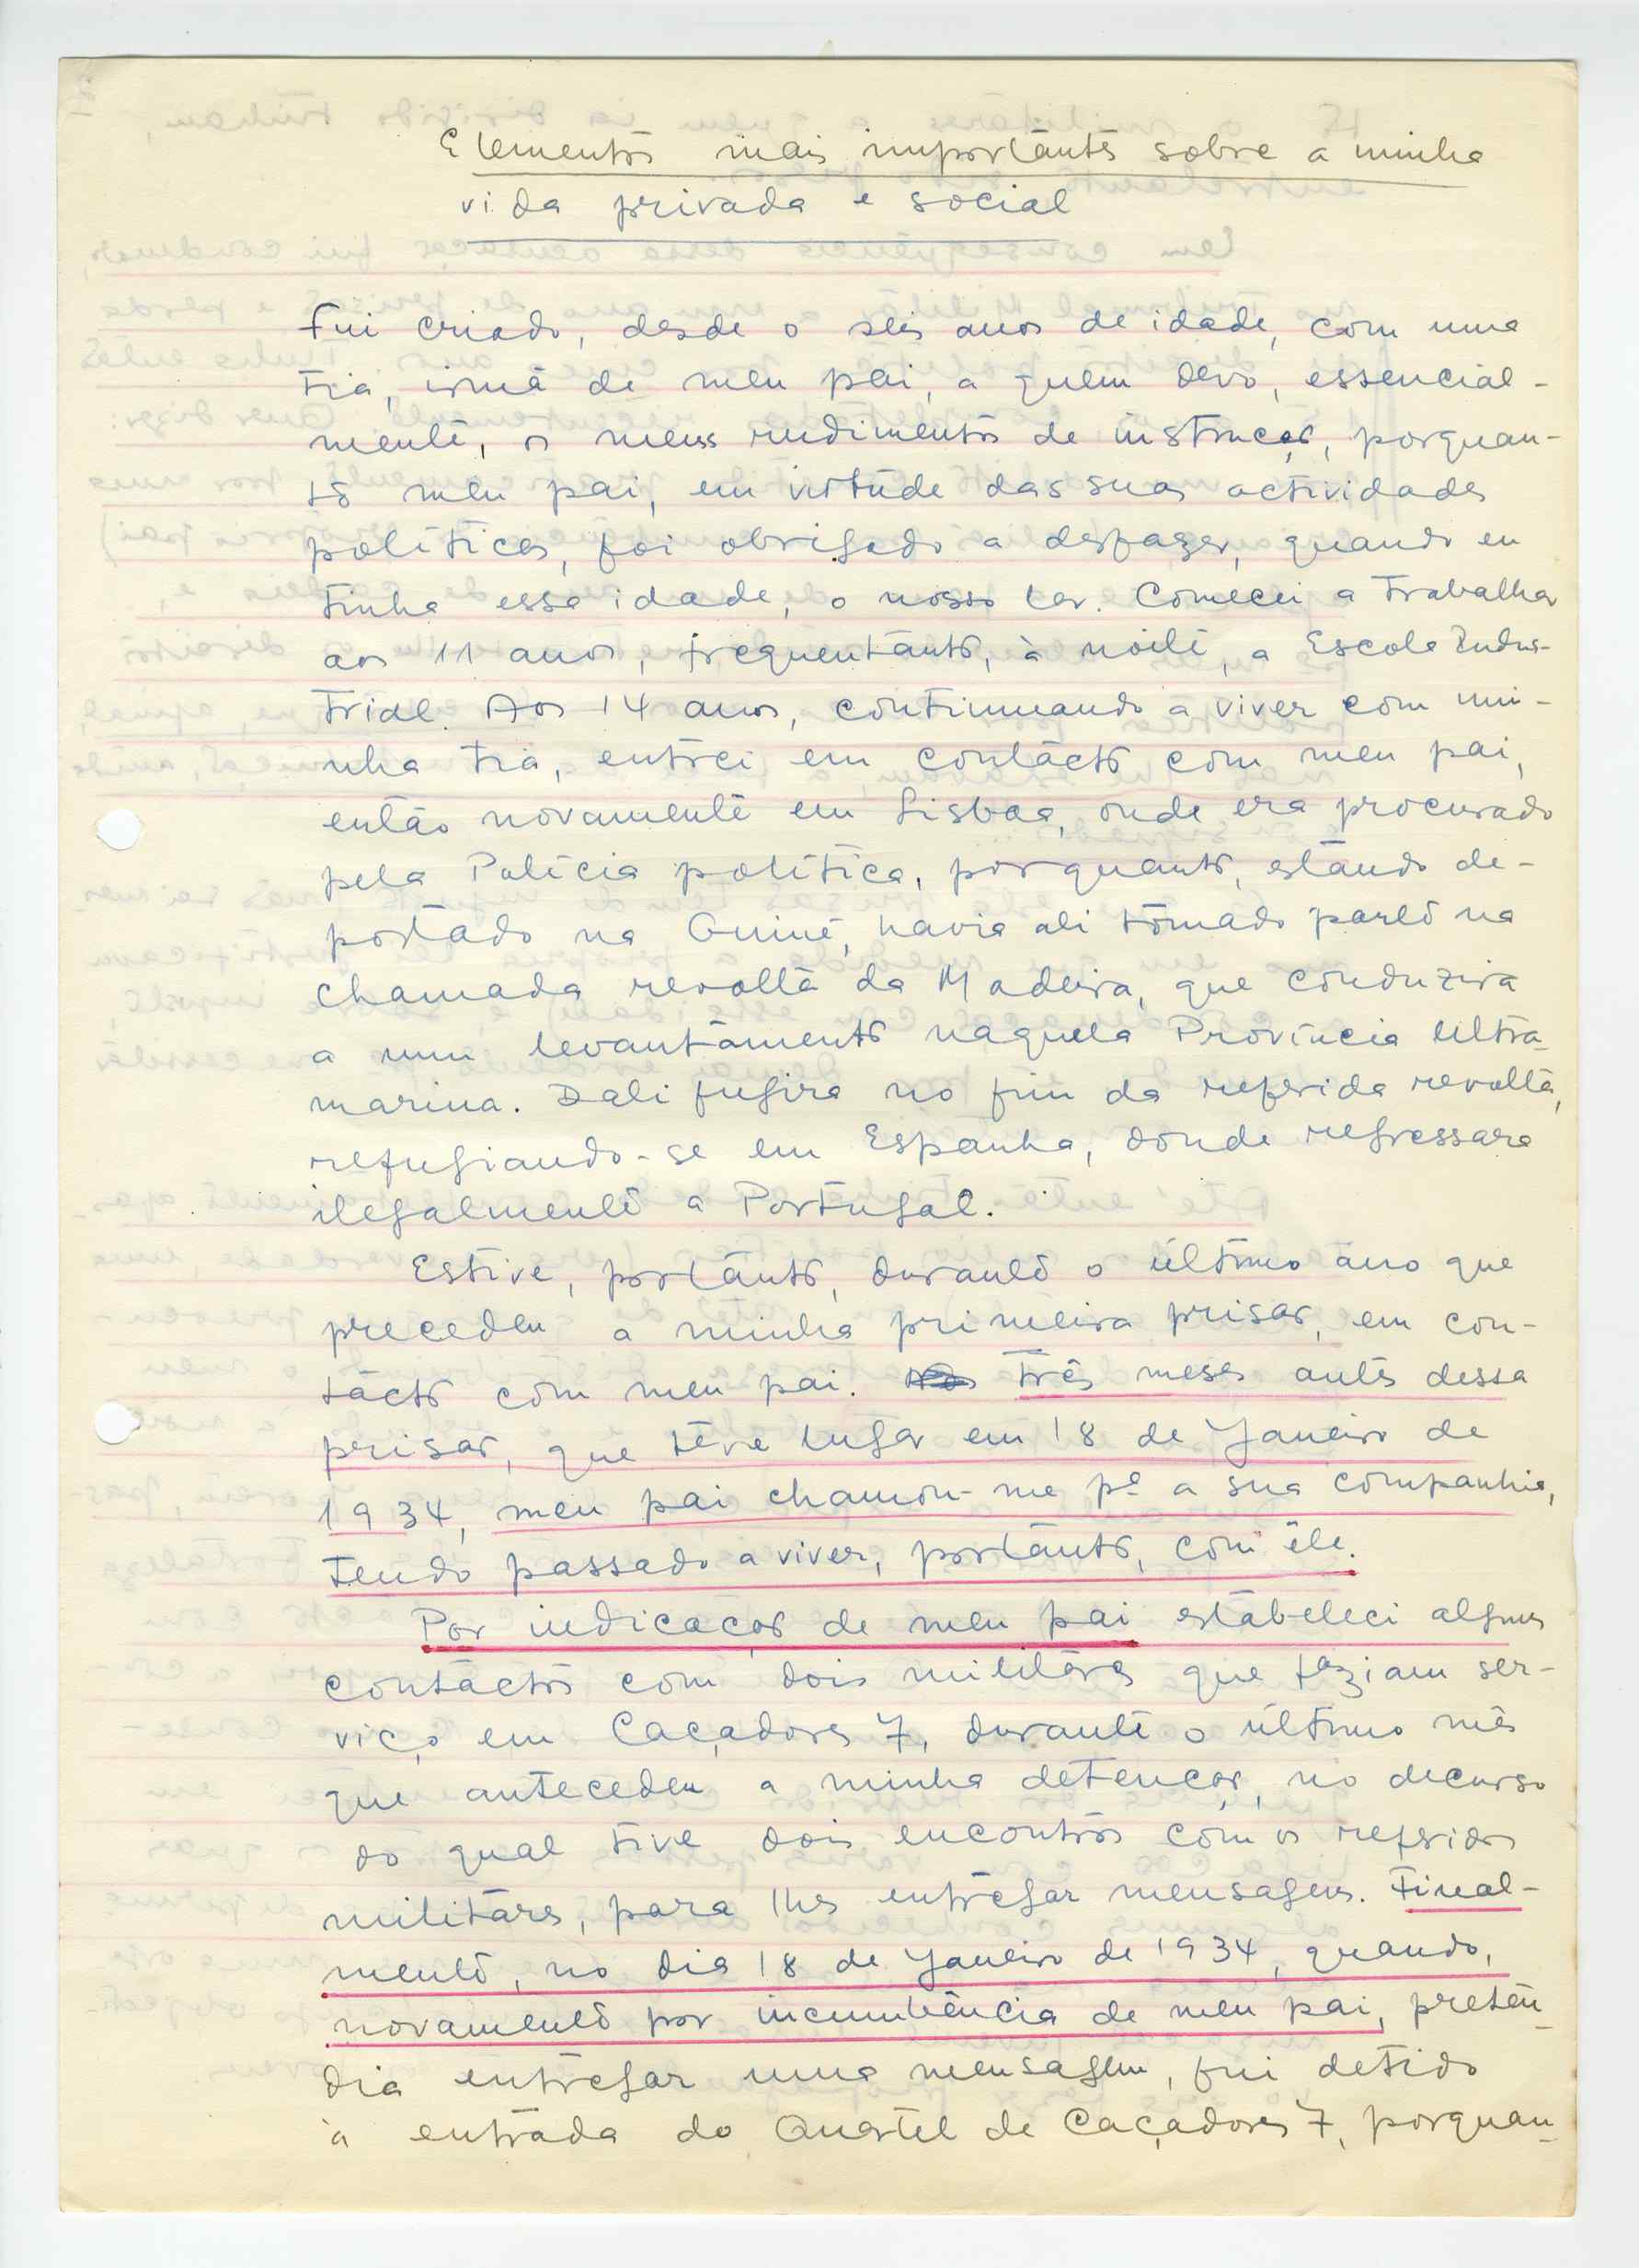 Elementos mais importantes sobre a minha
vida privada e social
Fui criado, desde os seis anos de idade, com uma
tia, irmã de meu pai, a quem devo, essencial-
mente, os meus rudimentos de instrução, porquan-
to meu pai, em virtude das suas actividades
políticas, foi obrigado a desfazer, quando eu
tinha essa idade, o nosso lar. Comecei a trabalhar
aos 11 anos, frequentando, à noite, a Escola Indus-
trial. Aos 14 anos, continuando a viver com mi-
nha tia, entrei em contacto com meu pai,
então novamente em Lisboa, onde era procurado
pela Polícia política, porquanto, estando de-
portado na Guiné, havia ali tomado parte na
chamada revolta da Madeira, que conduzira
a um levantamento naquela Província Ultra-
marina. Dali fugira no fim da referida revolta,
refugiando-se em Espanha, donde regressara
ilegalmente a Portugal.
Estive, portanto, durante o último ano que
precedeu a minha primeira prisão, em con-
tacto com meu pai. Três meses antes dessa
prisão, que teve lugar em 18 de Janeiro de
1934, meu pai chamou-me pª a sua companhia,
tendo passado a viver, portanto, com êle.
Por indicação de meu pai estabeleci alguns
contactos com dois militares que faziam ser-
viço em Caçadores 7, durante o último mês
que antecedeu a minha detenção, no decurso
do qual tive dois encontros com os referidos
militares, para lhes entregar mensagens. Final-
mente, no dia 18 de Janeiro de 1934, quando,
novamente por incumbência de meu pai, preten-
dia entregar uma mensagem, fui detido
à entrada do Quartel de Caçadores 7, porquan-